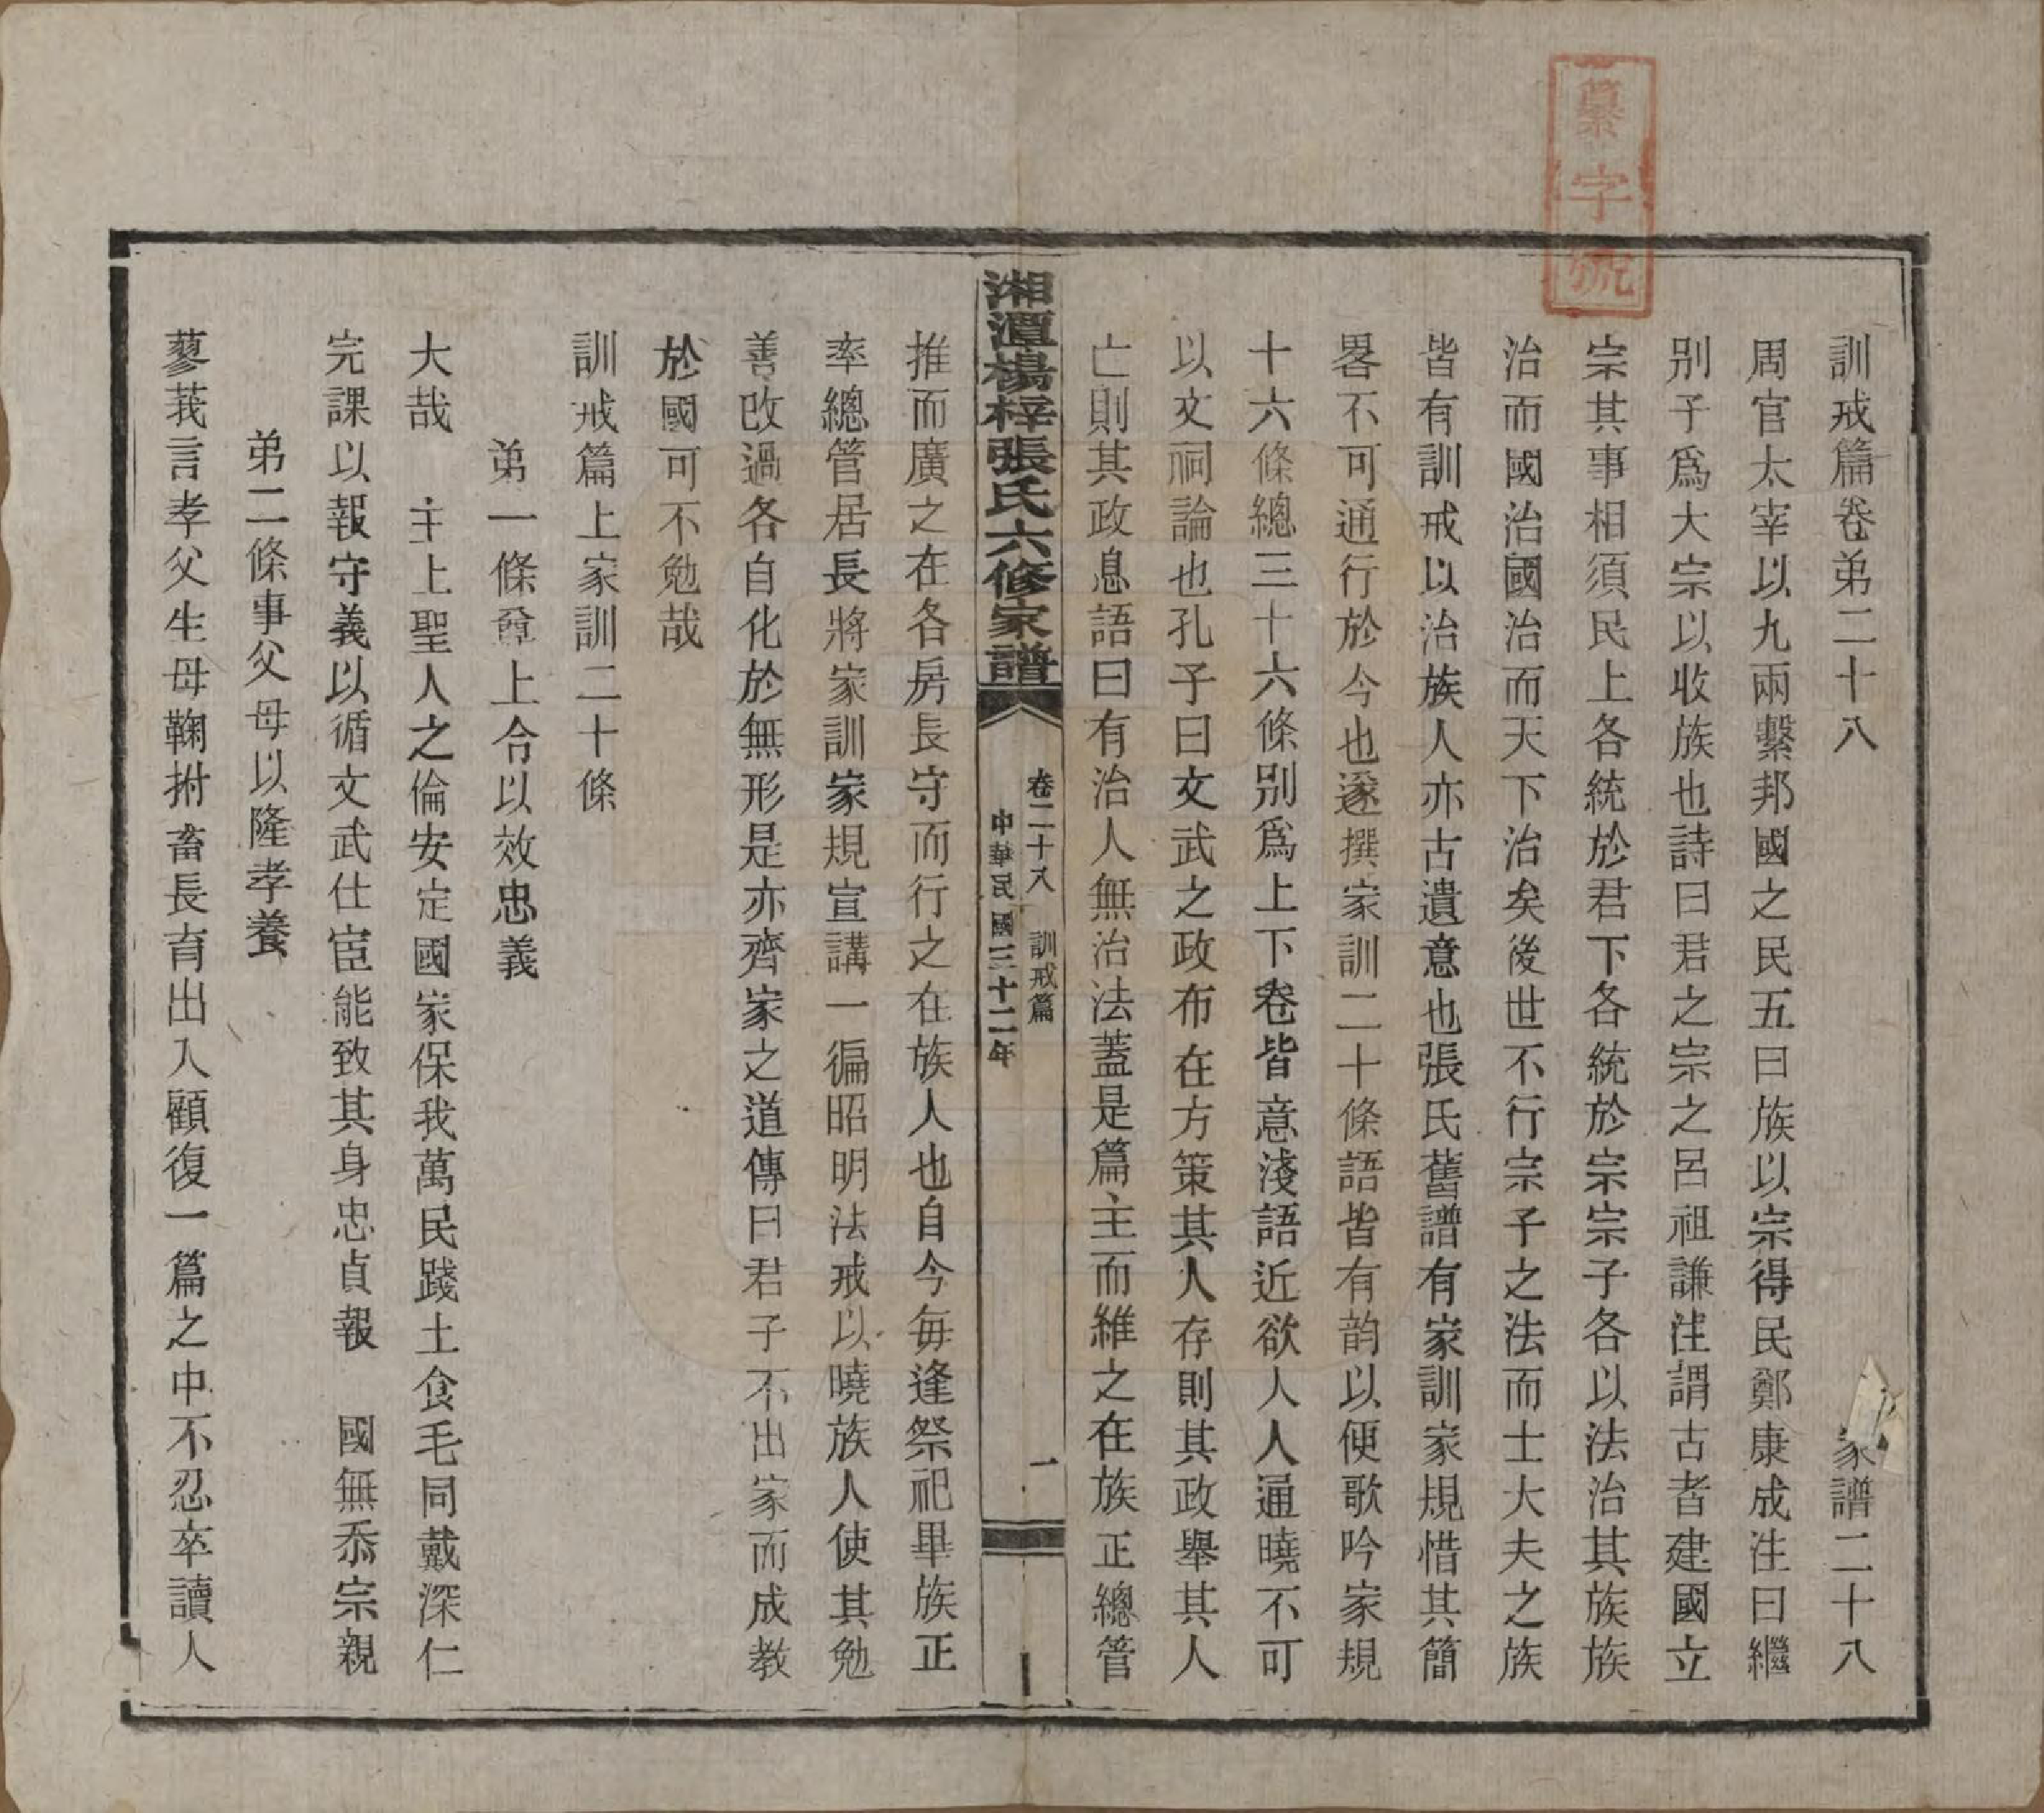 纂字號
訓戒篇卷弟二十八　家譜二十八
周官太宰以九兩繫邦國之民五曰族以宗得民鄭康成注曰繼
别子爲大宗以收族也詩曰君之宗之呂祖謙注謂古者建國立
宗其事相須民上各統於君下各統於宗宗子各以法治其族族
治而國治國治而天下治矣後世不行宗子之法而士大夫之族
皆有訓戒以治族人亦古遺意也張氏舊譜有家訓家規惜其簡
畧不可通行於今也遂撰家訓二十條語皆有韵以便歌吟家規
十六條總三十六條别爲上下卷皆意淺語近欲人人通曉不可
以文祠論也孔子曰文武之政布在方策其人存則其政舉其人
亡則其政息語曰有治人無治法蓋是篇主而維之在族正總管
湘潭楊梓張氏六修家譜
卷二十八　訓戒篇　一
中華民國三十二年
推而廣之在各房長守而行之在族人也自今每逢祭祀畢族正
率總管居長將家訓家規宣講一徧昭明法戒以曉族人使其勉
善改過各自化於無形是亦齊家之道傳曰君子不出家而成教
於國可不勉哉
訓戒篇上家訓二十條
弟一條尊上合以效忠義
大哉　主上聖人之倫安定國家保我萬民踐土食毛同戴深仁
完課以報守義以循文武仕宦能致其身忠貞報　國無忝宗親
弟二條事父母以隆孝養
蓼莪言孝父生母鞠拊畜長育出入顧復一篇之中不忍卒讀人